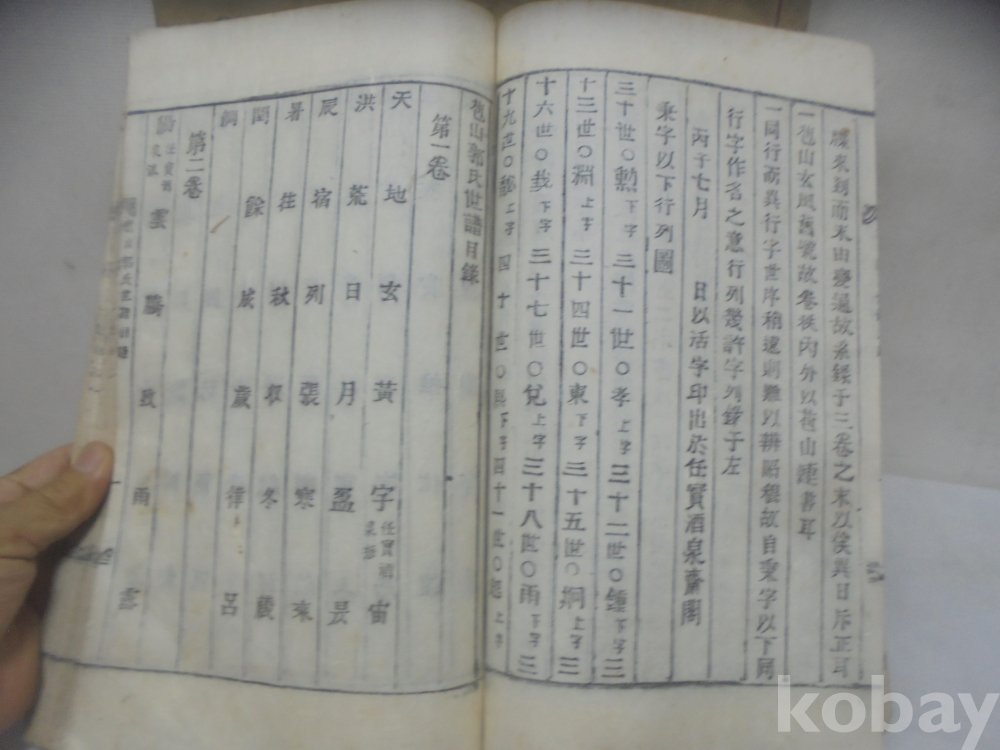 來朔而來由變通故系錄于三卷之末以俟異日斥正耳
一苞山玄風舊號故卷後內外以苞山連書耳
一同行而異行字世序稍遠則難以辨屬稷故自秉字以下同
行字作名之意行列幾許字列錄于左
丙子七月 日以活字印出於任實酒泉齋閣
秉字以下行列圖
三十世○勲下字三十一世○孝上字三十二世○鍾下字三
十三世○淵上字三十四世○東下字三十五世○炯上字三
十六世○哉下字三十七世○兌上字三十八世○雨下字三
十九世○ 上字四十世○ 下字四十一世○ 上字
苞山郭氏世譜目錄
第一卷
天 地 玄 黃 宇 宙
任實
洪 荒 日 月 盈 昃
辰 宿 列 張 寒 來
暑 往 秋 收 冬 藏
閏 餘 成 歲 律 呂
調
第二卷
雲 騰 致 雨 露
kobay